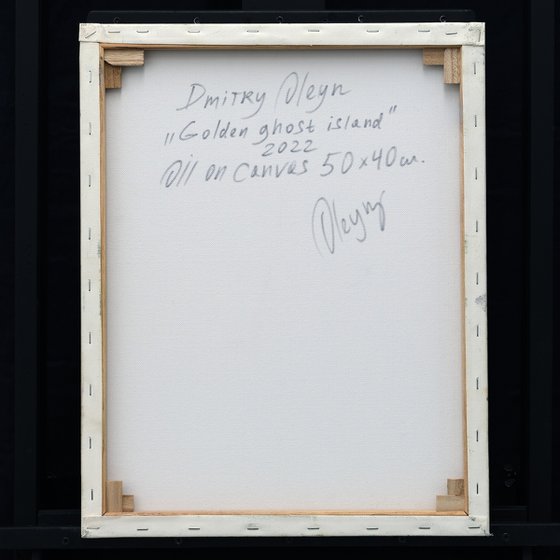 Dmitry Oleyn
„Golden ghost island"
2022
Oil on canvas 50x40cm.
Oleyn